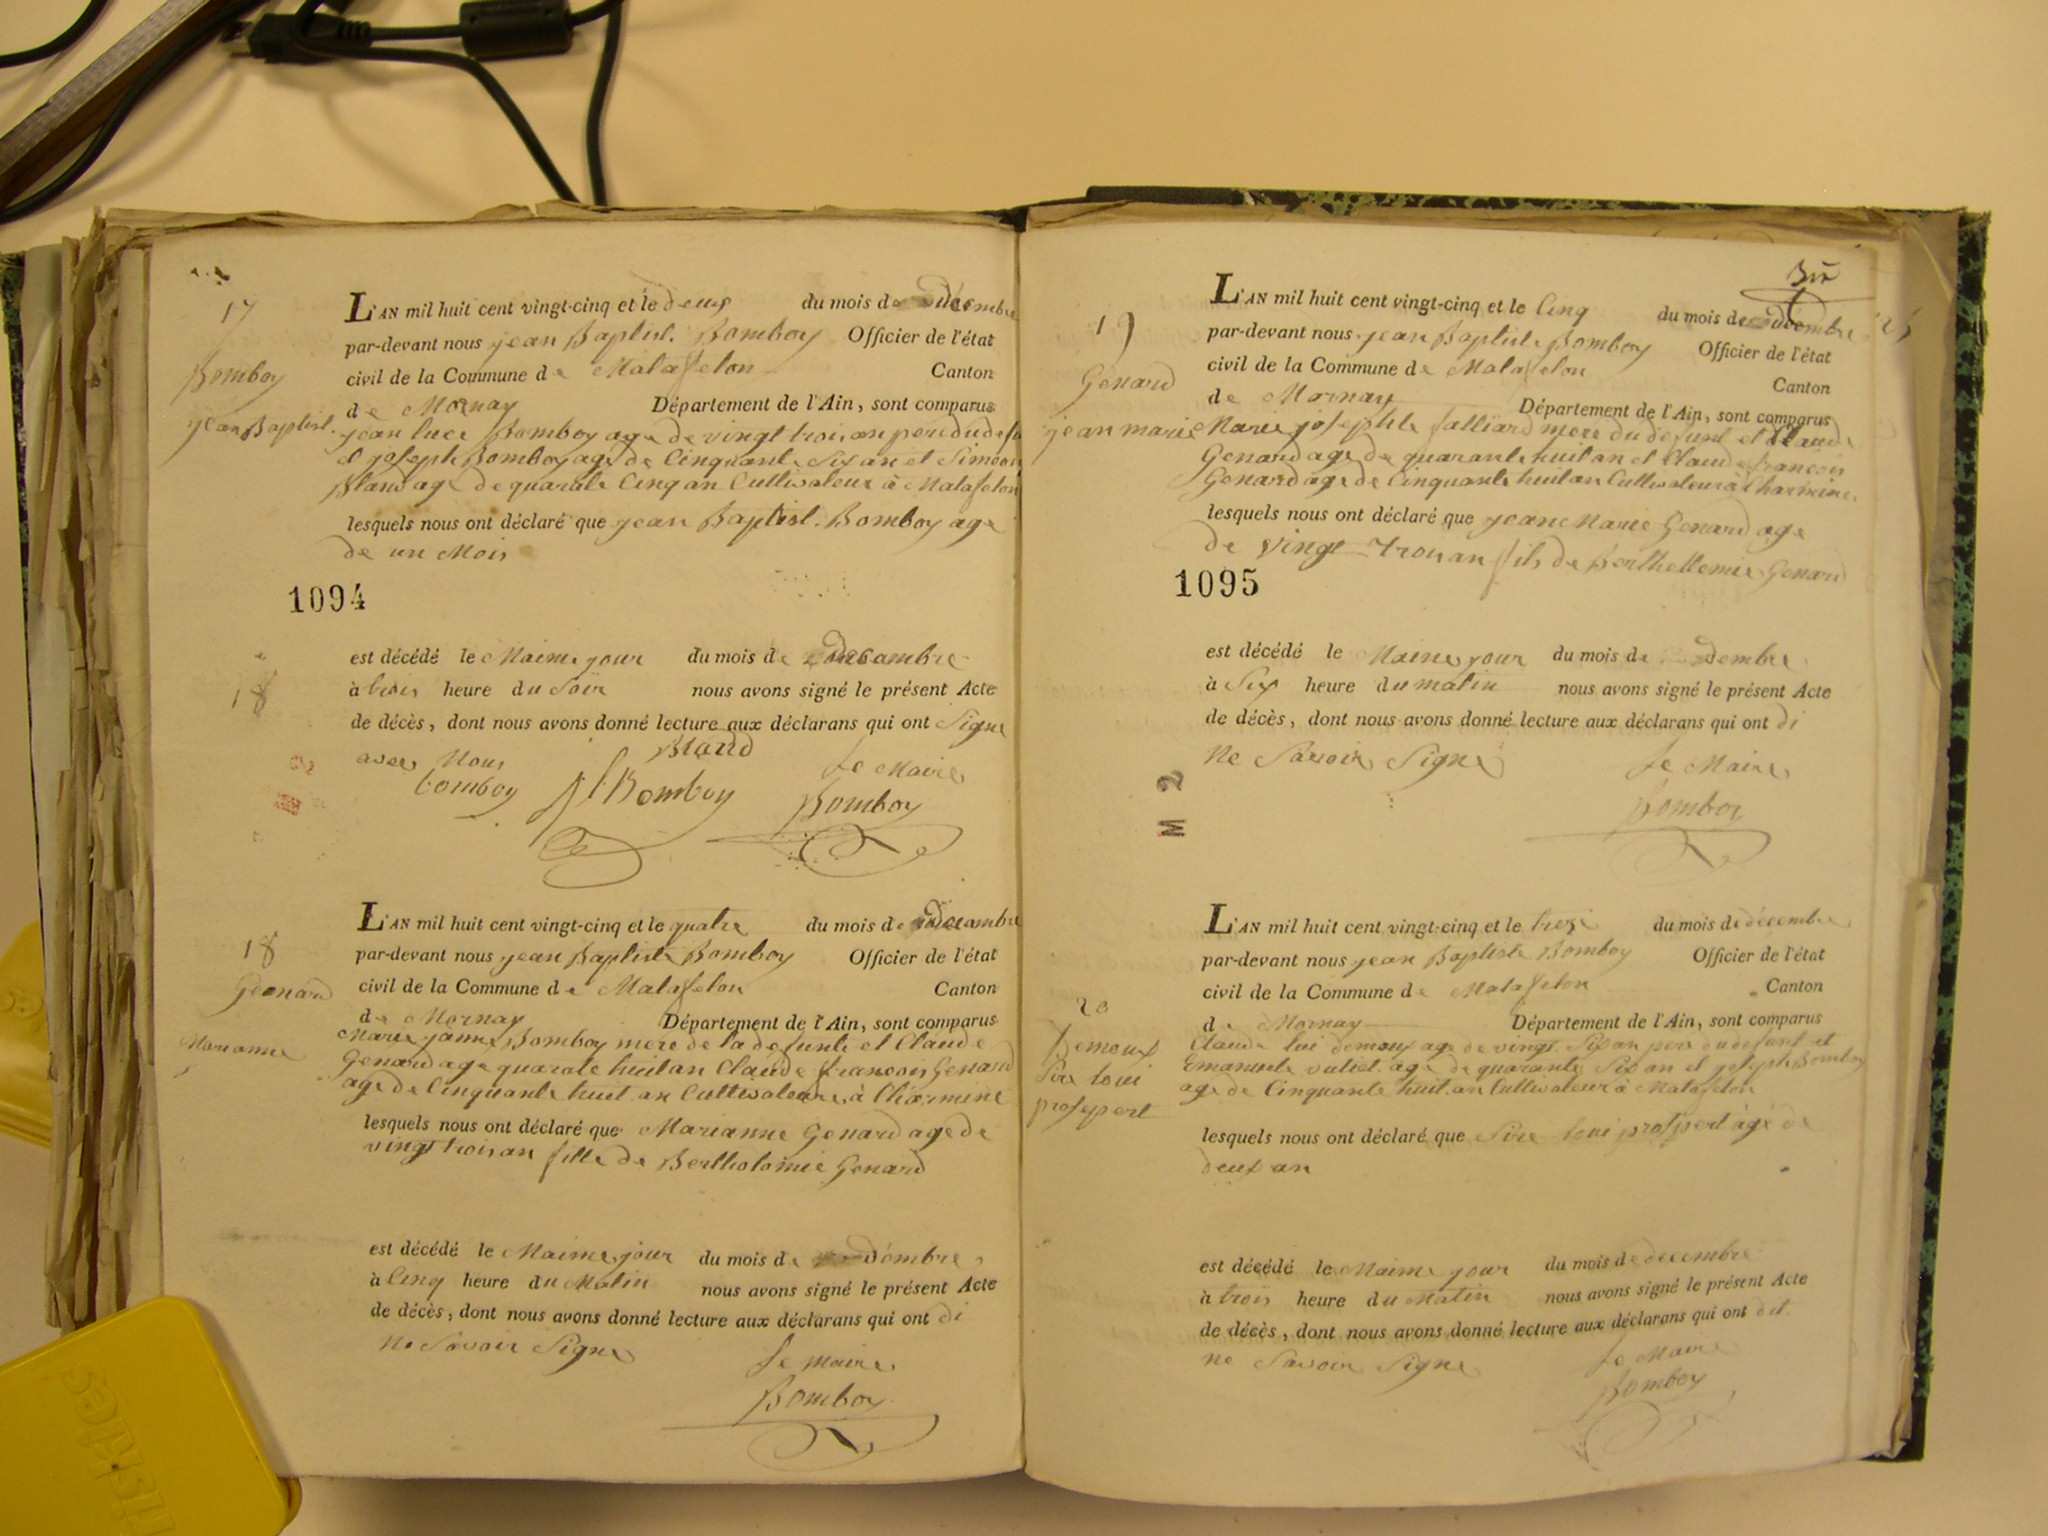 17
Bomboy
jean Baptist.
L'AN mil huit cent vingt-cinq et le deux du mois de Décembre
par-devant nous jean Baptist. Bomboy Officier de l'état
civil de la Commune de Matafelon Canton
de Mornay Département de l'Ain, sont comparus
jean luce Bomboy age de vingt trois an pere du defu
et joseph Bomboy age de Cinquante Six an et Simeon
Bland age de quarate Cinq an Cultivateur à Matafelon
lesquels nous ont déclaré que jean Baptist. Bomboy age
de un Mois
1094
18
est décédé le Maime jour du mois de Decambre
à trois heure du Soir nous avons signé le présent Acte
de décès, dont nous avons donné lecture aux déclarans qui ont Signe
avec Nous Bland Le Maire
bomboy Bomboy Bomboy
18
Géonard
Marianne
L'AN mil huit cent vingt-cinq et le quatre du mois de Decambre
par-devant nous jean Baptiste Bomboy Officier de l'état
civil de la Commune de Matafelon Canton
de Mornay Département de l'Ain, sont comparus
Marie janne Bomboy mere de la defunte et Claude
Genard age quarate huit an Claude francois Genard
age de Cinquante huit an Cultivateure à Charmine
lesquels nous ont déclaré que Marianne Genard age de
vingt trois an fille de Bertholomie Genard
est décédé le Maime jour du mois de Dembre
à Cinq heure du Matin nous avons signé le présent Acte
de décès, dont nous avons donné lecture aux déclarans qui ont di
ne Savoir Signe Le Maire
Bomboy
19
Genard
jean marie
L'AN mil huit cent vingt-cinq et le Cinq du mois de décembre
par-devant nous jean Baptiste Bomboy Officier de l'état
civil de la Commune de Matafelon Canton
de Mornay Département de l'Ain, sont comparus
Marie josephte falliard mere du defunt et Claude
Genard age de quarante huit an et Claude francois
Genard age de Cinquante huit an Cultivateur à Charmine
lesquels nous ont déclaré que jean Marie Genard age
de vingt trois an fils de Berthellemie Genard
1095
est décédé le Maime jour du mois de Dembre
à Six heure du matin nous avons signé le présent Acte
de décès, dont nous avons donné lecture aux déclarans qui ont di
Ne Savoir Signe Le Maire
Bomboy
M 2
20
Demoux
Sire loui
prospert
L'AN mil huit cent vingt-cinq et le trèze du mois de décembre
par-devant nous jean Baptiste Bomboy Officier de l'état
civil de la Commune de Matafelon Canton
de Mornay Département de l'Ain, sont comparus
Claude loui demoux age de vingt Six an pere du defunt et
Emanuele age de quarante Six an et joseph Bomboy
age de Cinquante huit an Cultivateur à Matafelon
lesquels nous ont déclaré que Sire loui prospert âgé de
deux an
est décédé le Maime jour du mois de decembre
à trois heure du Matin nous avons signé le présent Acte
de décès, dont nous avons donné lecture aux déclarans qui ont dit
ne Savoir Signe Le Maire
Bomboy